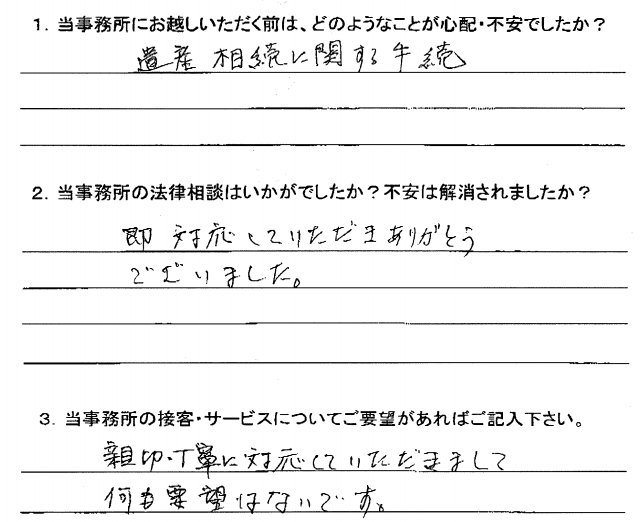 1. 当事務所にお越しいただく前は、どのようなことが心配・不安でしたか？
遺産相続に関する手続
2. 当事務所の法律相談はいかがでしたか？不安は解消されましたか？
即対応していただきありがとう
ございました。
3. 当事務所の接客・サービスについてご要望があればご記入下さい。
親切・丁寧に対応していただきまして
何も要望はないです。